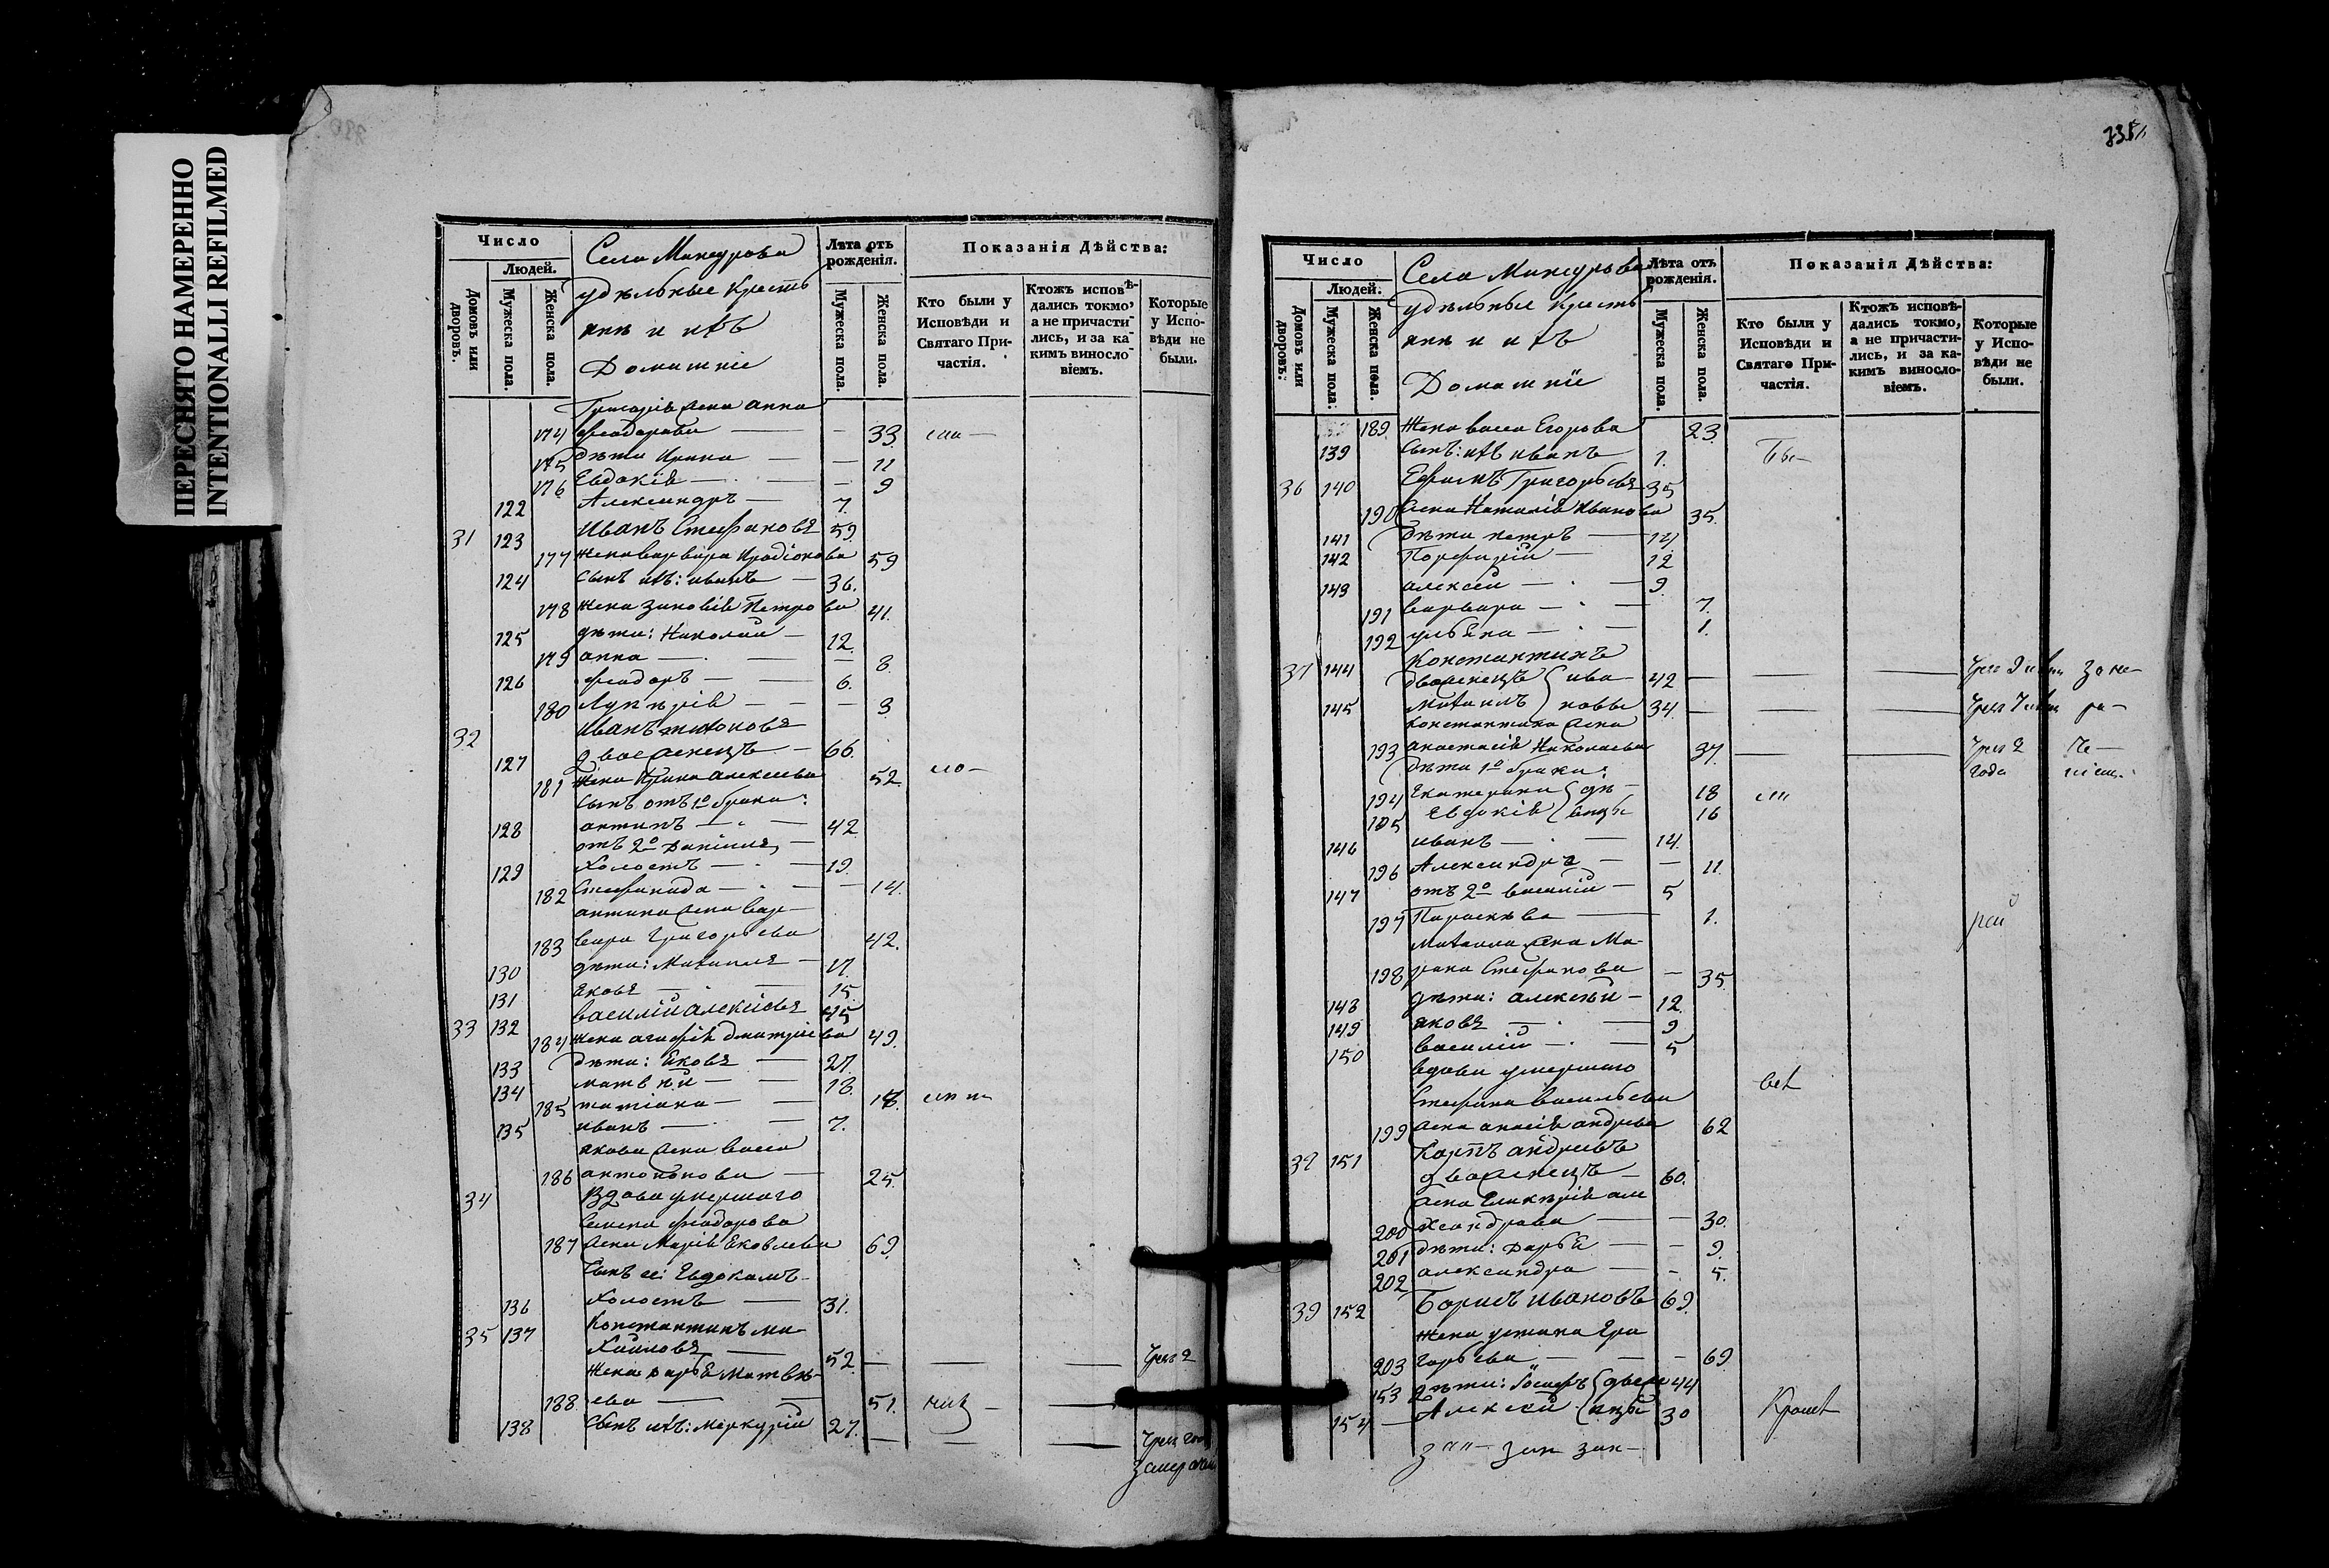 ПЕРЕСНЯТО НАМЕРЕННО
INTENTIONALLI REFILMED
Число
Людей.
Домовъ или дворовъ.
Мужеска пола.
Женска пола.
Села
удѣльные крестьяне и ихъ
Домашніе
Лѣта отъ рожденія.
Мужеска пола.
Женска пола.
Показанія Дѣйства:
Кто были у Исповѣди и Святаго Причастія.
Ктожъ исповѣдались токмо, а не причастились, и за какимъ винословіемъ.
Которые у Исповѣди не были.
Григорія жена Анна
174 Ѳеодорова — 33.
175 Дѣти Ирина — 11
176 Евдокія — 9
122 Александръ — 7.
31 123 Иванъ Стефановъ 59.
177 Жена Варвара Иродіонова 59
124 Сынъ ихъ: Иванъ — 36.
178 Жена Зиновія Петрова 41.
125 дѣти: Николай — 12.
179 Анна — 8.
126 Ѳеодоръ — 6.
180 — 3.
32 Иванъ
127 двоеженецъ — 66.
181 Жена Ирина Алексѣева 52
Сынъ отъ 1го брака:
128 Антипъ — 42
отъ 2го Даніилъ —
129 Холостъ — 19.
182 Стефанида — 14.
Антипа жена Вар-
183 вара Григорьева 42.
130 дѣти: Михаилъ — 17.
131 Яковъ — 15.
33 132 Василій Алексѣевъ 45
184 Жена Агафія Дмитріева 49.
133 Дѣти: Яковъ — 27.
134 Матвѣй — 18.
185 Татіана — 18.
135 Иванъ — 7.
Якова жена Васса
186 — 25.
34 Вдова умершаго
Семена Ѳеодорова
187 жена Марія Яковлева 69.
Сынъ ее: Евдокимъ
136 Холостъ — 31.
35 137 Константинъ Ми-
хайловъ — 52. —
Жена Дарья Матвѣ-
188. ева — 51.
138 Сынъ ихъ: Меркурій 27. —
Число
Людей.
Домовъ или дворовъ.
Мужеска пола.
Женска пола.
Села
удѣльные крестьяне и ихъ
Домашніи
Лѣта отъ рожденія.
Мужеска пола.
Женска пола.
Показанія Дѣйства:
Кто были у Исповѣди и Святаго Причастія.
Ктожъ исповѣдались токмо, а не причастились, и за какимъ винословіемъ.
Которые у Исповѣди не были.
189. Жена Васса Егорова 23.
139 Сынъ: ихъ Иванъ 1.
36 140 Ефимъ Григорьевъ 35
190 жена Наталія Иванова 35.
141 Дѣти Петръ — 14
142 Порфирій — 12
143 Алексѣй — 9.
191 Варвара — 7.
192 Ульяна — 1.
37 144 Константинъ
двоеженецъ ива- 42 —
145 Михаилъ новы 34. —
Константина жена
193 Анастасія Николаева 37. — года
дѣти 1го брака:
194 Екатерина дѣ- 18
195 Евдокія вицы 16
146 Иванъ — 14.
196 Александра — 11.
147 отъ 2го Василій — 5
197 Параскева — 1.
Михаила жена Ма-
198 рина Стефанова — 35.
148 дѣти: Алексѣй — 12.
149 Яковъ — 9
150 Василій — 5
Вдова умершаго
Стефана Васильева
199 жена 62
151
двоеженецъ — 60.
жена Гликерія Але
200 ксандрова — 30.
201 дѣти: Дарья — 9.
202 Александра — 5.
39 152 Борисъ Ивановъ 69.
Жена Устина Гри
203 горьева — 69.
153 дѣти: 44
154 Алексѣй 30